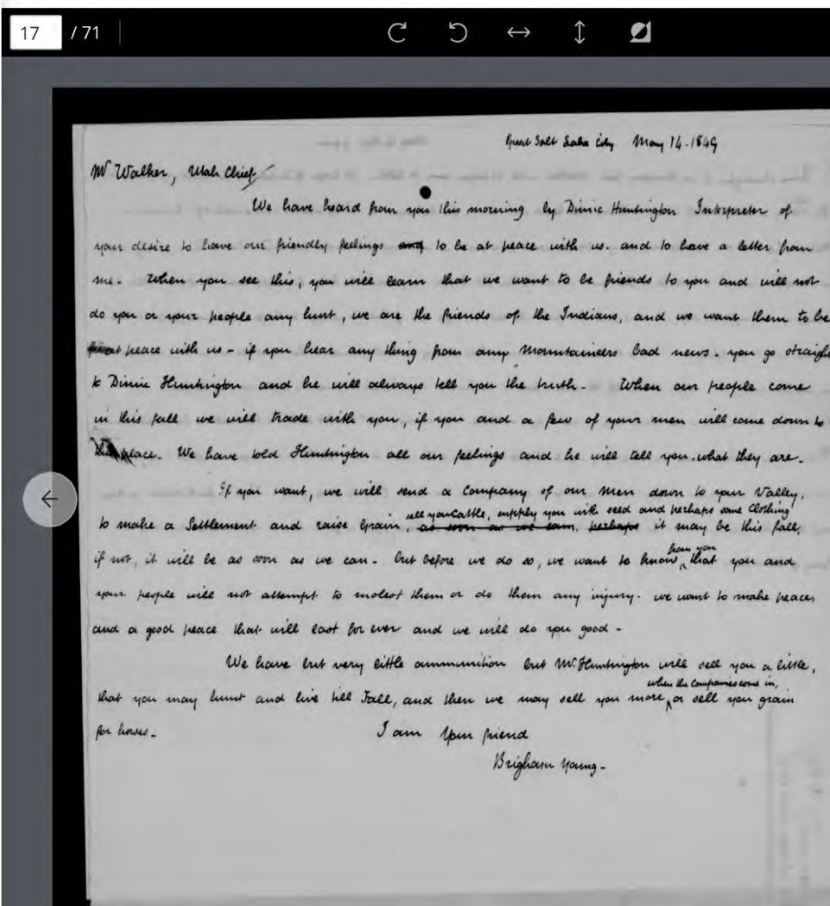 17 / 71
Great Salt Lake City May 14. 1849
Mr Walker, Utah Chief
We have heard from you this morning by Dimic Huntington Interpreter of
your desire to have our friendly feelings and to be at peace with us. and to have a letter from
me. When you see this, you will learn that we want to be friends to you and will not
do you or your people any hurt, we are the friends of the Indians, and we want them to be
at peace with us - if you hear any thing from any Mountaineers bad news. you go straigh
to Dimic Huntington and he will always tell you the truth. When our people come
in this fall we will trade with you, if you and a few of your men will come down to
this place. We have told Huntington all our feelings and he will tell you what they are.
If you want, we will send a Company of our Men down to your Valley,
sell you Cattle, supply you with seed and perhaps some Clothing
to make a Settlement and raise Grain, as soon as we can, perhaps it may be this fall;
from you
if not, it will be as soon as we can. but before we do so, we want to know that you and
your people will not attempt to molest them or do them any injury. we want to make peace,
and a good peace that will last for ever and we will do you good -
We have but very little ammunition but Mr. Huntington will sell you a little,
when the Companies come in,
that you may hunt and live till Fall, and then we may sell you more, or sell you grain
for horses.
I am Your friend
Brigham Young -